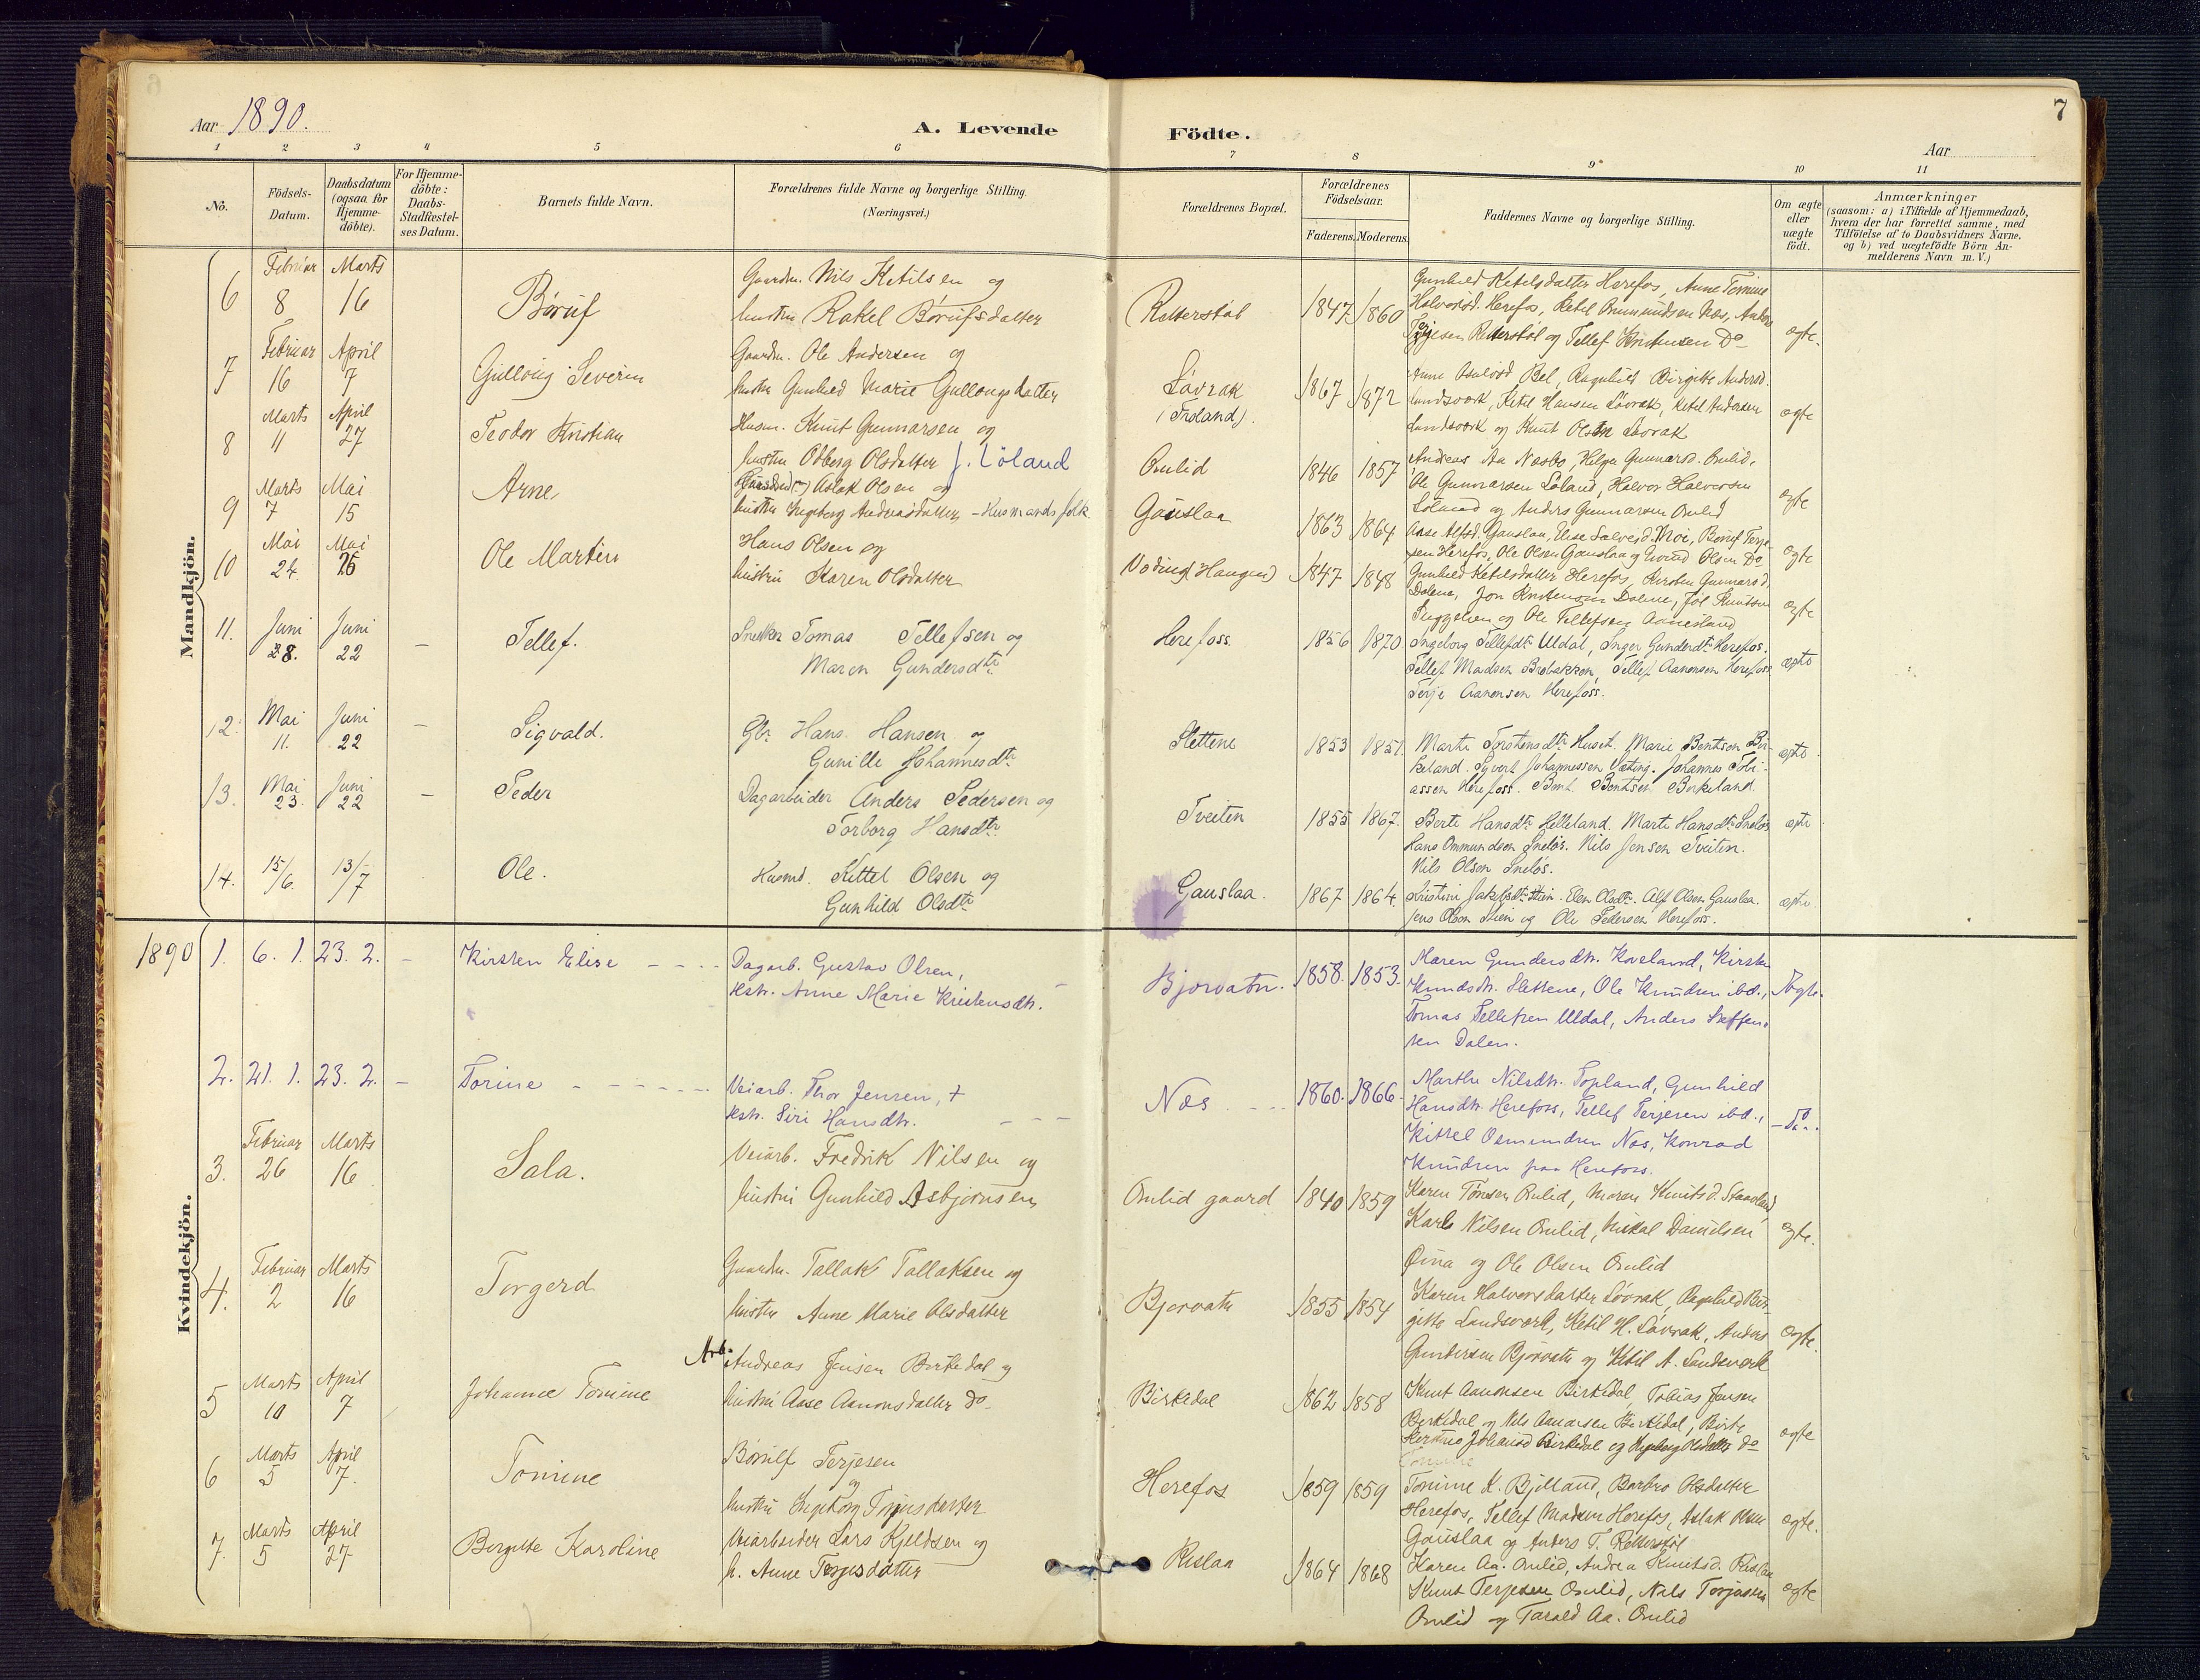 7
Aar 1890.
A. Levende Födte.
Aar
1 2 3 4 5 6 7 8 9 10 11
No.
Födsels-Datum.
Daabsdatum (ogsaa for Hjemme-döbte).
For Hjemme-döbte: Daabs-Stadfæstel-ses Datum.
Barnets fulde Navn.
Forældrenes fulde Navne og borgerlige Stilling. (Næringsvei.)
Forældrenes Bopæl.
Forældrenes Födselsaar.
Faderens. Moderens.
Faddernes Navne og borgerlige Stilling.
Om ægte eller uægte födt.
Anmærkninger
(saasom: a) i Tilfælde af Hjemmedaab,
hvem der har forrettet samme, med
Tilföielse af to Daabsvidners Navne.
og b) ved uægtefödte Börn An-
melderens Navn m. V.)
Mandkjön.
6 Februar 8 Marts 16 Børuf
Gaardm. Nils Ketilsen og
hustru Rakel Børufsdatter
1847 1860
Gunhild Ketelsdatter Herefos, Anne Tomine
Halvorsd. Herefos, Ketil Omundsen Næs,
Terjesen og Tellef Kristensen Do
ægte.
7 Februar 16 April 7 Gulloug Severin
Gaardm. Ole Andersen og
hustru Gunhild Marie Gullougsdatter
Løvrak (Froland). 1867 1872
Anne Bel, Ragnhild Birgitte Andersd.
Landsværk, Ketil Hansen Løvrak, Ketil Andersen
Landsværk og Knut Olsen Løvrak
ægte
8 Marts 11 April 27 Teodor Kristian
Husm. Knut Gunnarsen og
hustru Odberg Olsdatter f. Löland
Omlid 1846 1857
Andreas Aa Næsbø, Helga Gunnarsd. Omlid,
Ole Gunnarsen Løland, Halvor Halvorsen
Løland og Anders Gunnarsen Omlid
ægte
9 Marts 7 Mai 15 Arne
Aslak Olsen og
hustru Ingeborg Andreasdatter - Husmandsfolk
Gauslaa 1863 1864
Aase Alfsd. Gauslaa, Else Salvesd. Moi, Børuf Terje-
sen Herefos, Ole Olsen Gauslaa og Olsen Do
ægte
10 Mai 24 Mai 26 Ole Martin
Hans Olsen og
hustru Karen Olsdatter
(Haugen) 1847 1848
Gunhild Ketelsdatter Herefos, Kirsten Gunnarsd.
Dalene, Jon Kristensen Dalene, Knutsen
og Ole Tellefsen Aanesland
ægte
11. Juni 28. Juni 22 - Tellef.
Snekker Tomas Tellefsen og
Maren Gundersdtr
Herefoss 1856 1870
Ingeborg Tellefdtr Uldal, Inger Gundersdtr Herefos.
Tellef Madsen Brobakken, Tellef Aanonsen Herefoss
Terje Aanonsen Herefoss.
ægte
12. Mai 11. Juni 22 - Sigvald.
Gbr. Hans Hansen og
Gunille Johannesdtr
Slettene 1853 1851
Marte Torstensdtr Huset. Marie Bentsen Bir-
keland. Syvert Johannessen Væting. Johannes Tobi-
assen Herefoss. Bent Bentsen Birkeland.
ægte
13. Mai 23. Juni 22 - Peder
Dagarbeider Anders Pedersen og
Torborg Hansdtr
Tveiten 1855 1867.
Berte Hansdtr Helleland. Marte Hansdtr Sneløs
Hans Ommundsen Sneløs. Nils Jensen Tveiten.
Nils Olsen Sneløs.
ægte
14. 15/6. 13/7 Ole.
Husmd. Kittel Olsen og
Gunhild Olsdtr
Gauslaa. 1867 1864.
Kristine Stien. Elen Olsdtr. Alf Olsen Gauslaa.
Jens Olsen Stien og Ole Pedersen Herefoss.
ægte
Kvindekjön.
1890 1. 6. 1. 23. 2. - Kirsten Elise
Dagarb. Gustav Olsen,
Hstr. Anne Marie Kristensdtr.
Bjorvatn. 1858. 1853.
Maren Gundersdtr. Koveland, Kirsten
Knudsdtr. Slettene, Ole Knudsen ibd.,
Tomas Tellefsen Uldal, Anders Steffen-
sen Dalen.
Ægte.
2. 21. 1. 23. 2. - Torine
Veiarb. Thor Jensen, +
Hstr. Siri Hansdtr.
Næs 1860. 1866.
Marthe Nilsdtr. Topland, Gunhild
Hansdtr. Herefoss, Tellef Terjesen ibd.,
Kittel Osmundsen Næs, Konrad
Knudsen fra Herefoss.
- Do.
3. Februar 26 Marts 16 Sala.
Veiarb. Fredrik Nilsen og
hustru Gunhild Asbjørnsen
Omlid gaard 1840 1859
Karen Tønnesen Omlid, Maren Knutsd. Staaland,
Karls Nilsen Omlid, Mikal Danielsen
og Ole Olsen Omlid
ægte.
4. Februar 2 Marts 16 Torgerd
Gaardm. Tallak Tallaksen og
hustru Anne Marie Olsdatter
Bjorvatn 1855 1854
Karen Halvorsdatter Løvrak, Ragnhild Bir-
gitte Landsværk, Ketil H. Løvrak, Anders
Gundersen Bjorvatn og Ketil A. Landsværk
ægte.
5 Marts 10 April 7 Johanne Tomine
Arb. Andreas Jensen Birkedal og
hustru Aase Aanonsdatter do
Birkedal 1862 1858
Knut Aanonsen Birkedal, Tobias Jensen
Birkedal og Nils Aanonsen Birkedal, Birte
Johansd Birkedal og Ingeborg Olsdatter do
ægte
6 Marts 5 April 7. Tomine
Børulf Terjesen
og
hustru Ingeborg Terjesdatter
Herefos 1859 1859
Tomine K. Bjelland, Barbro Olsdatter
Herefos, Tellef Madsen Herefos, Aslak Olsen
Gauslaa og Anders T.
ægte.
7. Marts 5 April 27 Birgitte Karoline
Veiarbeider Lars Kjeldsen og
h. Anne Terjesdatter
Rislaa 1864 1868
Karen Aa. Omlid, Andrea Knutsd. Rislaa
Knut Terjesen Omlid, Nils Terjesen
Omlid og Tarald Aa. Omlid
ægte